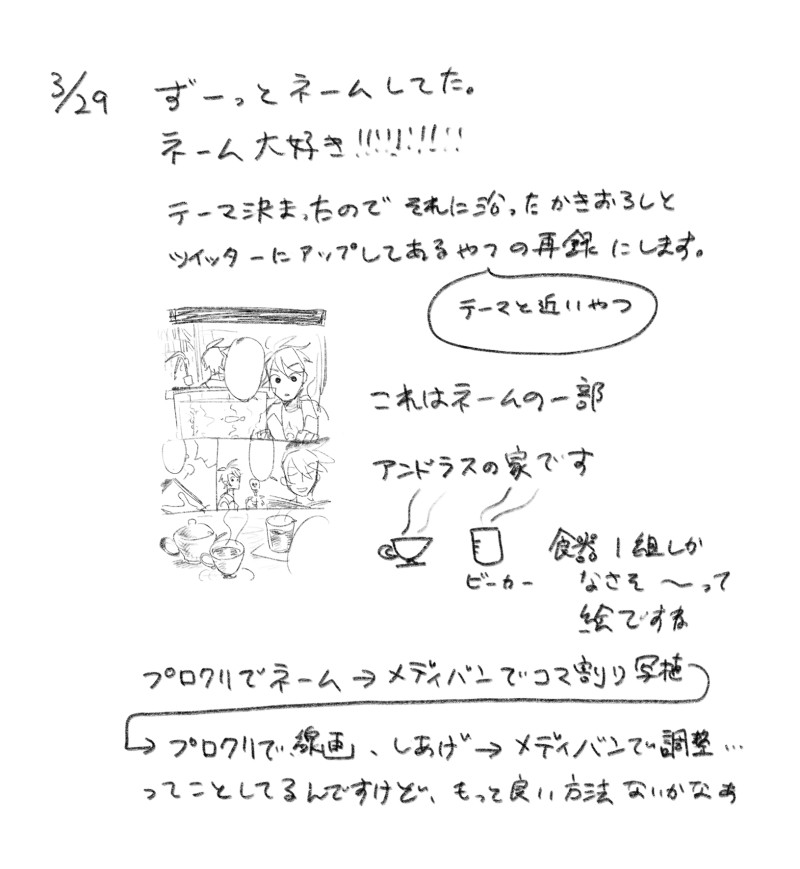 3/29 ずーっとネームしてた。
ネーム大好き!!!!!!!!!
テーマ決まったので それに沿ったかきおろしと
ツイッターにアップしてあるやつの再録にします。
テーマと近いやつ
これはネームの一部
アンドラスの家です
ビーカー
食器1組しか
なさそ〜って
絵ですね
プロクリでネーム→メディバンでコマ割り写植
→プロクリで線画、しあげ→メディバンで調整…
ってことしてるんですけど、もっと良い方法ないかなぁ